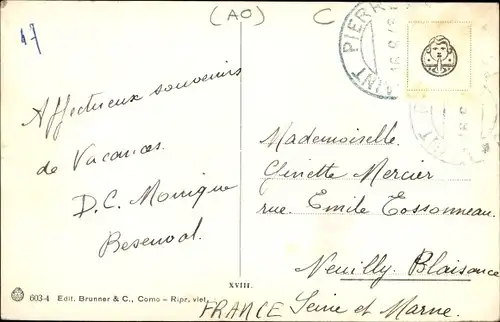 47
(AO)
C
SAINT PIERRE
Affectueux souvenirs
de Vacances.
D.C. Monique
Besenval.
Mademoiselle
Ginette Mercier
rue. Emile Cossonneau.
Neuilly. Plaisance
Seine et Marne.
FRANCE
XVIII.
603-4 Edit. Brunner & C., Como – Ripr. viet.